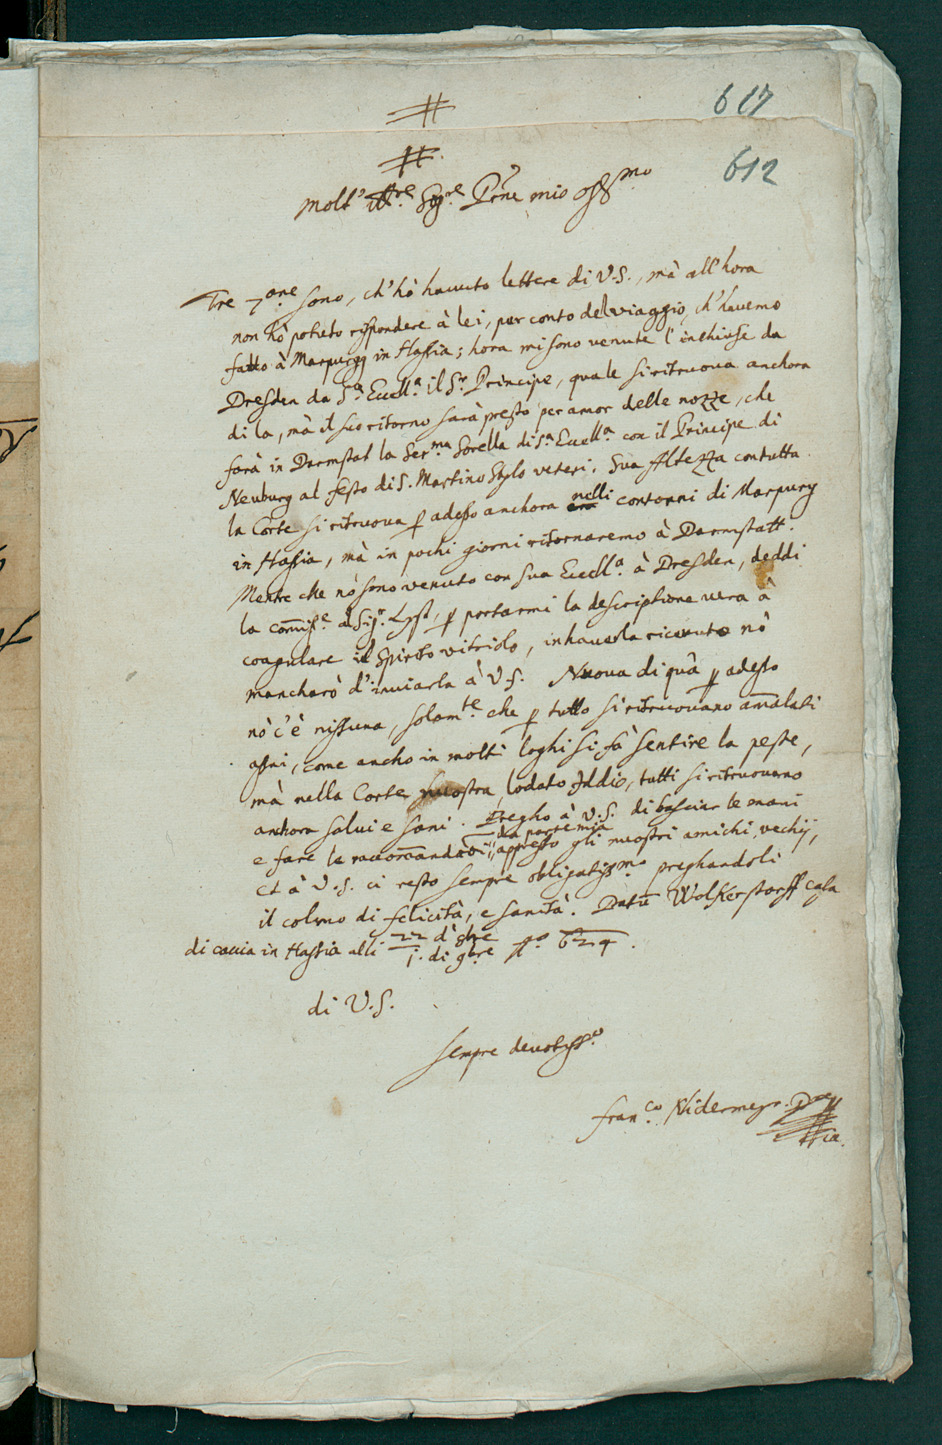 617
612
Molt' Ill.re Sig.re P̄rne mio oss.mo
Tre 7.ane sono, ch'hò hauuto lettere di V.S., mà all'hora
non hò potuto rispondere à lei, per conto del viaggio, ch'hauemo
fatto à Marpurg in Hassia; hora mi sono venute l'inchiuse da
Dresden da S.a Eccell.a il S.r Principe, quale si ritruova anchora
di la, mà il suo ritorno sarà presto per amor delle nozze, che
farà in Darmstat la Ser.ma Sorella di S.a Eccell.a con il Principe di
Neuburg al festo di S. Martino Stylo veteri. Sua Altezza con tutta
la Corte si ritruova p adesso anchora nelli contorni di Marpurg
in Hassia, mà in pochi giorni ritornaremo à Darmstatt.
Mentre che nō sono venuto con sua Eccell.a à Dresden, deddi
la com̄iss.e al Sig.r p portarmi la descriptione vera à
coagulare il Spirito vitriolo, in hauerla riceuuto nō
mancharò d'inuiarla à V.S. Nuova di quà p adesso
nō c'è nissuna, solam.te che p tutto si ritruouano amalati
assai, come ancho in molti loghi si fà sentire la peste,
mà nella Corte nuostra, lodato Iddio, tutti si ritruouano
anchora salui e sani. Pregho à V.S. di basciar le mani
da parte mia
e fare le raccom̄andationi appresso gli nuostri amichi vechij,
et à V.S. ci resto sempre obligatiss.mo preghandoli
il colmo di felicità, e sanità. Datū Wolkerstorff casa
di caccia in Hassia alli 22 d'8bre / 1. di 9bre A.o 624.
di V.S.
sempre deuotiss.o
Fran.co Nidermeyr